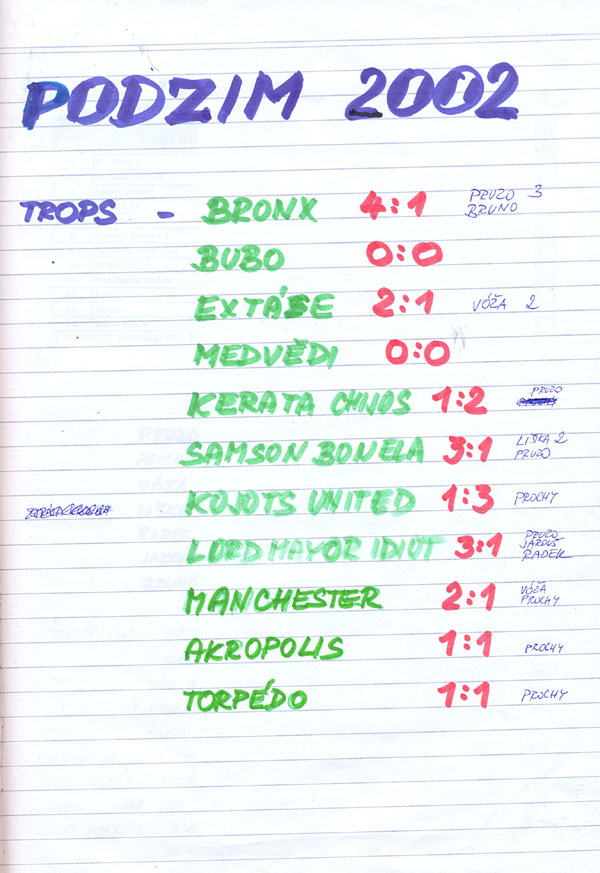 PODZIM 2002
TROPS - BRONX 4:1 PRUZO 3
BRUNO
BUBO 0:0
EXTÁSE 2:1 VÓŽA 2
MEDVĚDI 0:0
KERATA CHNOS 1:2 PRUZO
SAMSON BONELA 3:1 LIŠKA 2
PRUZO
KOJOTS UNITED 1:3 PROCHY
LORD MAYOR IDIOT 3:1 PRUZO
JARDUŠ
RADEK
MANCHESTER 2:1 VÓŽA
PROCHY
AKROPOLIS 1:1 PROCHY
TORPÉDO 1:1 PROCHY